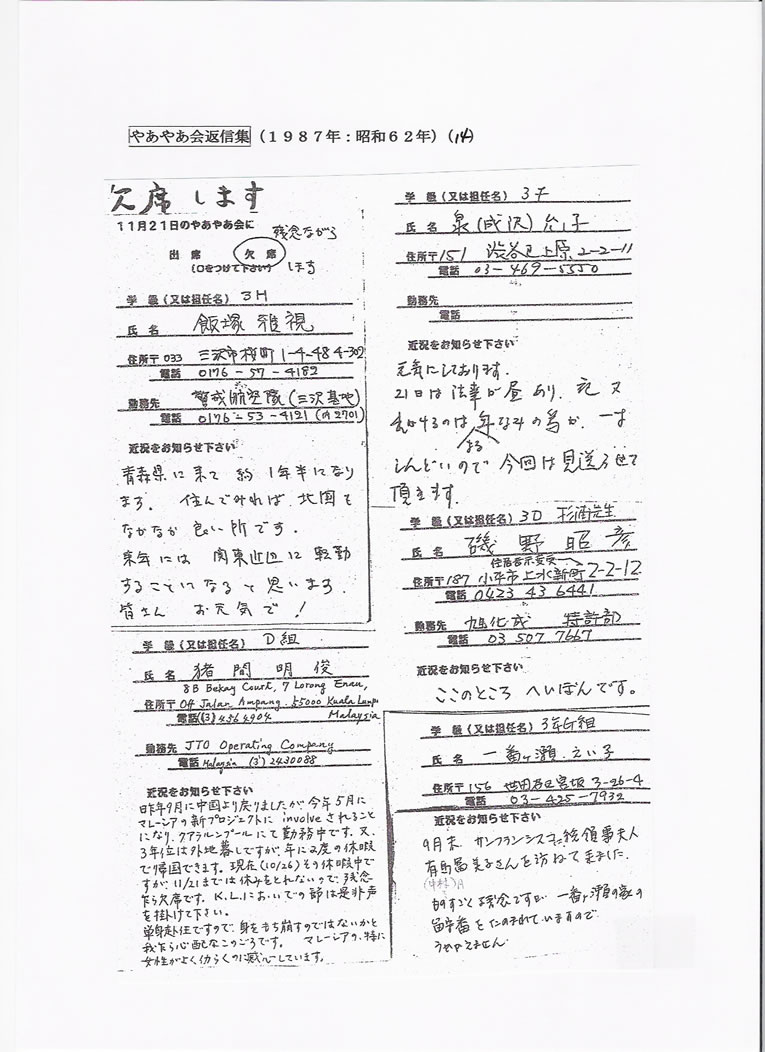 やあやあ会返信集（１９８７年：昭和６２年）(14)
欠席します
11月21日のやあやあ会に 残念ながら
出席 欠席
(○をつけて下さい) します
学級（又は担任名）3H
氏名 飯塚 雅視
住所〒033 三沢市桜町1-4-48 4-302
電話 0176-57-4182
勤務先 警戒航空隊(三沢基地)
電話 0176-53-4121(内2701)
近況をお知らせ下さい
青森県に来て 約1年半になり
ます。 住んでみれば、北国も
なかなか 良い所です。
来年には 関東近辺に 転勤
することになると 思います。
皆さん お元気で！
学級（又は担任名）D組
氏名 猪間 明俊
8B Bekay Court, 7 Lorong Enau,
住所〒 Off Jalan Ampang 55000 Kuala Lumpur
電話(3)4564904 Malaysia
勤務先 JTO Operating Company
電話 Malaysia (3)2430088
近況をお知らせ下さい
昨年9月に中国より戻りましたが今年5月に
マレーシアの新プロジェクトに involveされること
になり、クアラルンプールにて勤務中です。又、
3年位は外地暮しですが、年に2度の休暇
で帰国できます。現在(10/26)その休暇中で
すが、11/21までは休みをとれないので、残念
乍ら欠席です。K.L.においでの節は是非声
を掛けて下さい。
単身赴任ですので、身をもち崩すのではないかと
我乍ら心配なこのごろです。 マレーシアの、特に
女性がよく働らくのに感心しています。
学級（又は担任名）3F
氏名 泉(成沢)允子
住所〒151 渋谷区上原2-2-11
電話 03-469-5550
勤務先
電話
近況をお知らせ下さい
元気にしております。
21日は法事が昼あり、
しんどいので 今回は見送らせて
頂きます。
学級（又は担任名）3D 杉浦先生
氏名 磯野昭彦
住居表示変更
住所〒187 小平市上水新町2-2-12
電話 0423 43 6441
勤務先 旭化成 特許部
電話 03 507 7667
近況をお知らせ下さい
ここのところ へいぼんです。
学級（又は担任名）3年G組
氏名 一番ヶ瀬 えい子
住所〒156 世田谷区宮坂3-26-4
電話 03-425-7932
近況をお知らせ下さい
9月末、サンフランシスコに総領事夫人
有馬冨美子さんを訪ねて来ました。
ものすごく残念ですが 一番ヶ瀬の家の
留守番をたのまれていますので
うかがえません。